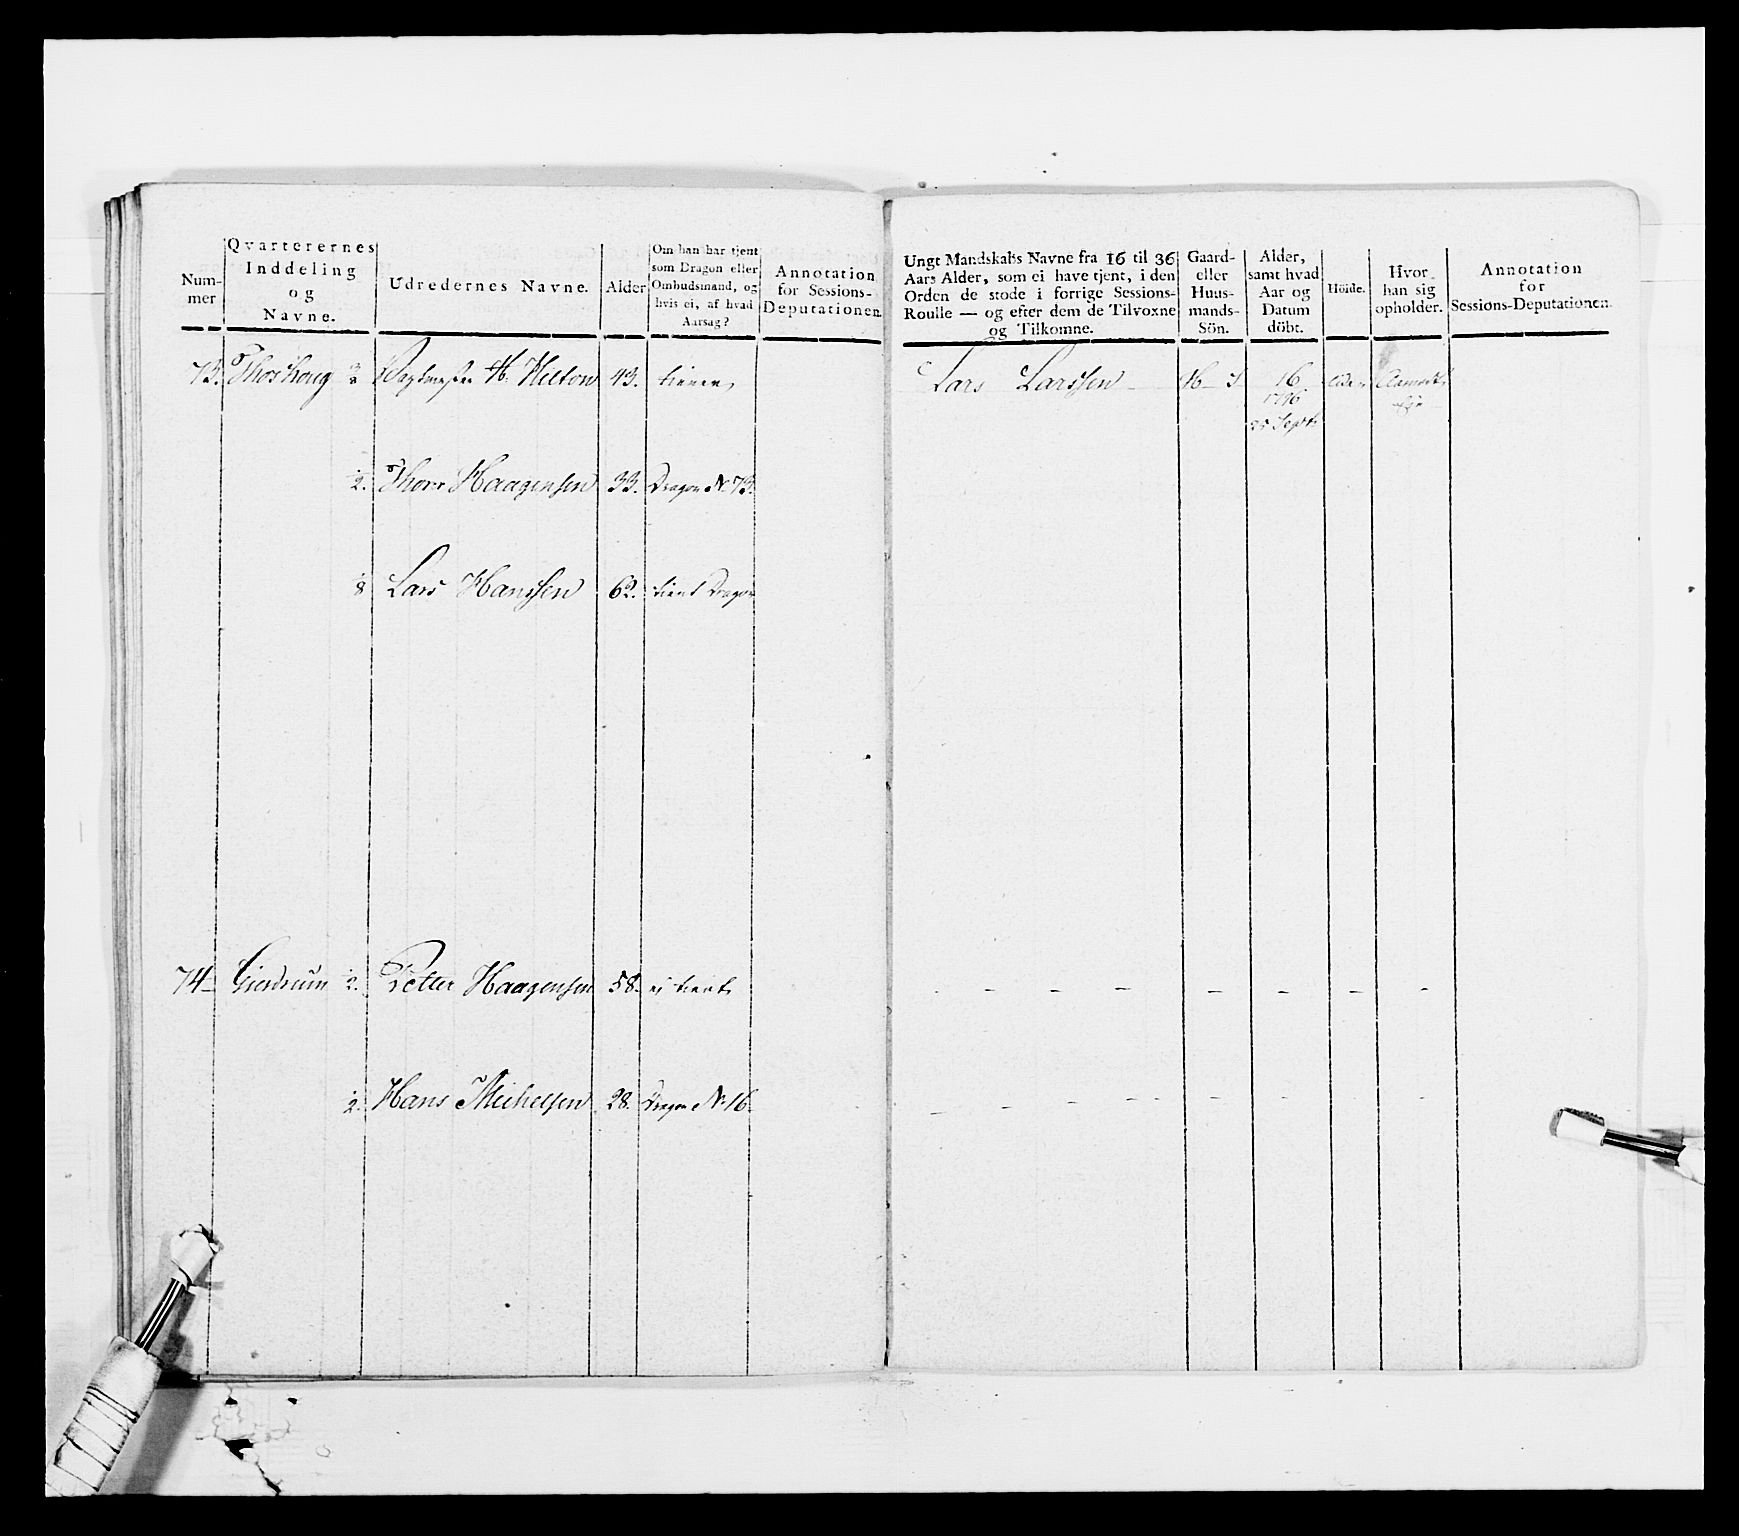 Num-
mer
Qvarterernes
Inddeling
og
Navne.
Udredernes Navne.
Alder
Om han har tjent
som Dragon eller
Ombudsmand, og
hvis ei, af hvad
Aarsag?
Annotation
for Sessions-
Deputationen.
73. Thoshoug 3/8 Vagtmester H. Hilton 43. tiener
1/2. Thore Haagensen 33. Dragon N. 73.
1/8 Lars Hanssen 62. tient Dragon
74 Gierdrum 1/2. Petter Haagensen 58. ej tient
1/2. Hans Michelsen 28. Dragon N. 16.
Ungt Mandskabs Navne fra 16 til 36
Aars Alder, som ei have tjent, i den
Orden de stode i forrige Sessions-
Roulle — og efter dem de Tilvoxne
og Tilkomne.
Gaard-
eller
Huus-
mands-
Sön.
Alder,
samt hvad
Aar og
Datum
döbt.
Höide.
Hvor
han sig
opholder.
Annotation
for
Sessions-Deputationen.
Lars Larssen H S 16.
1796
25 Septb